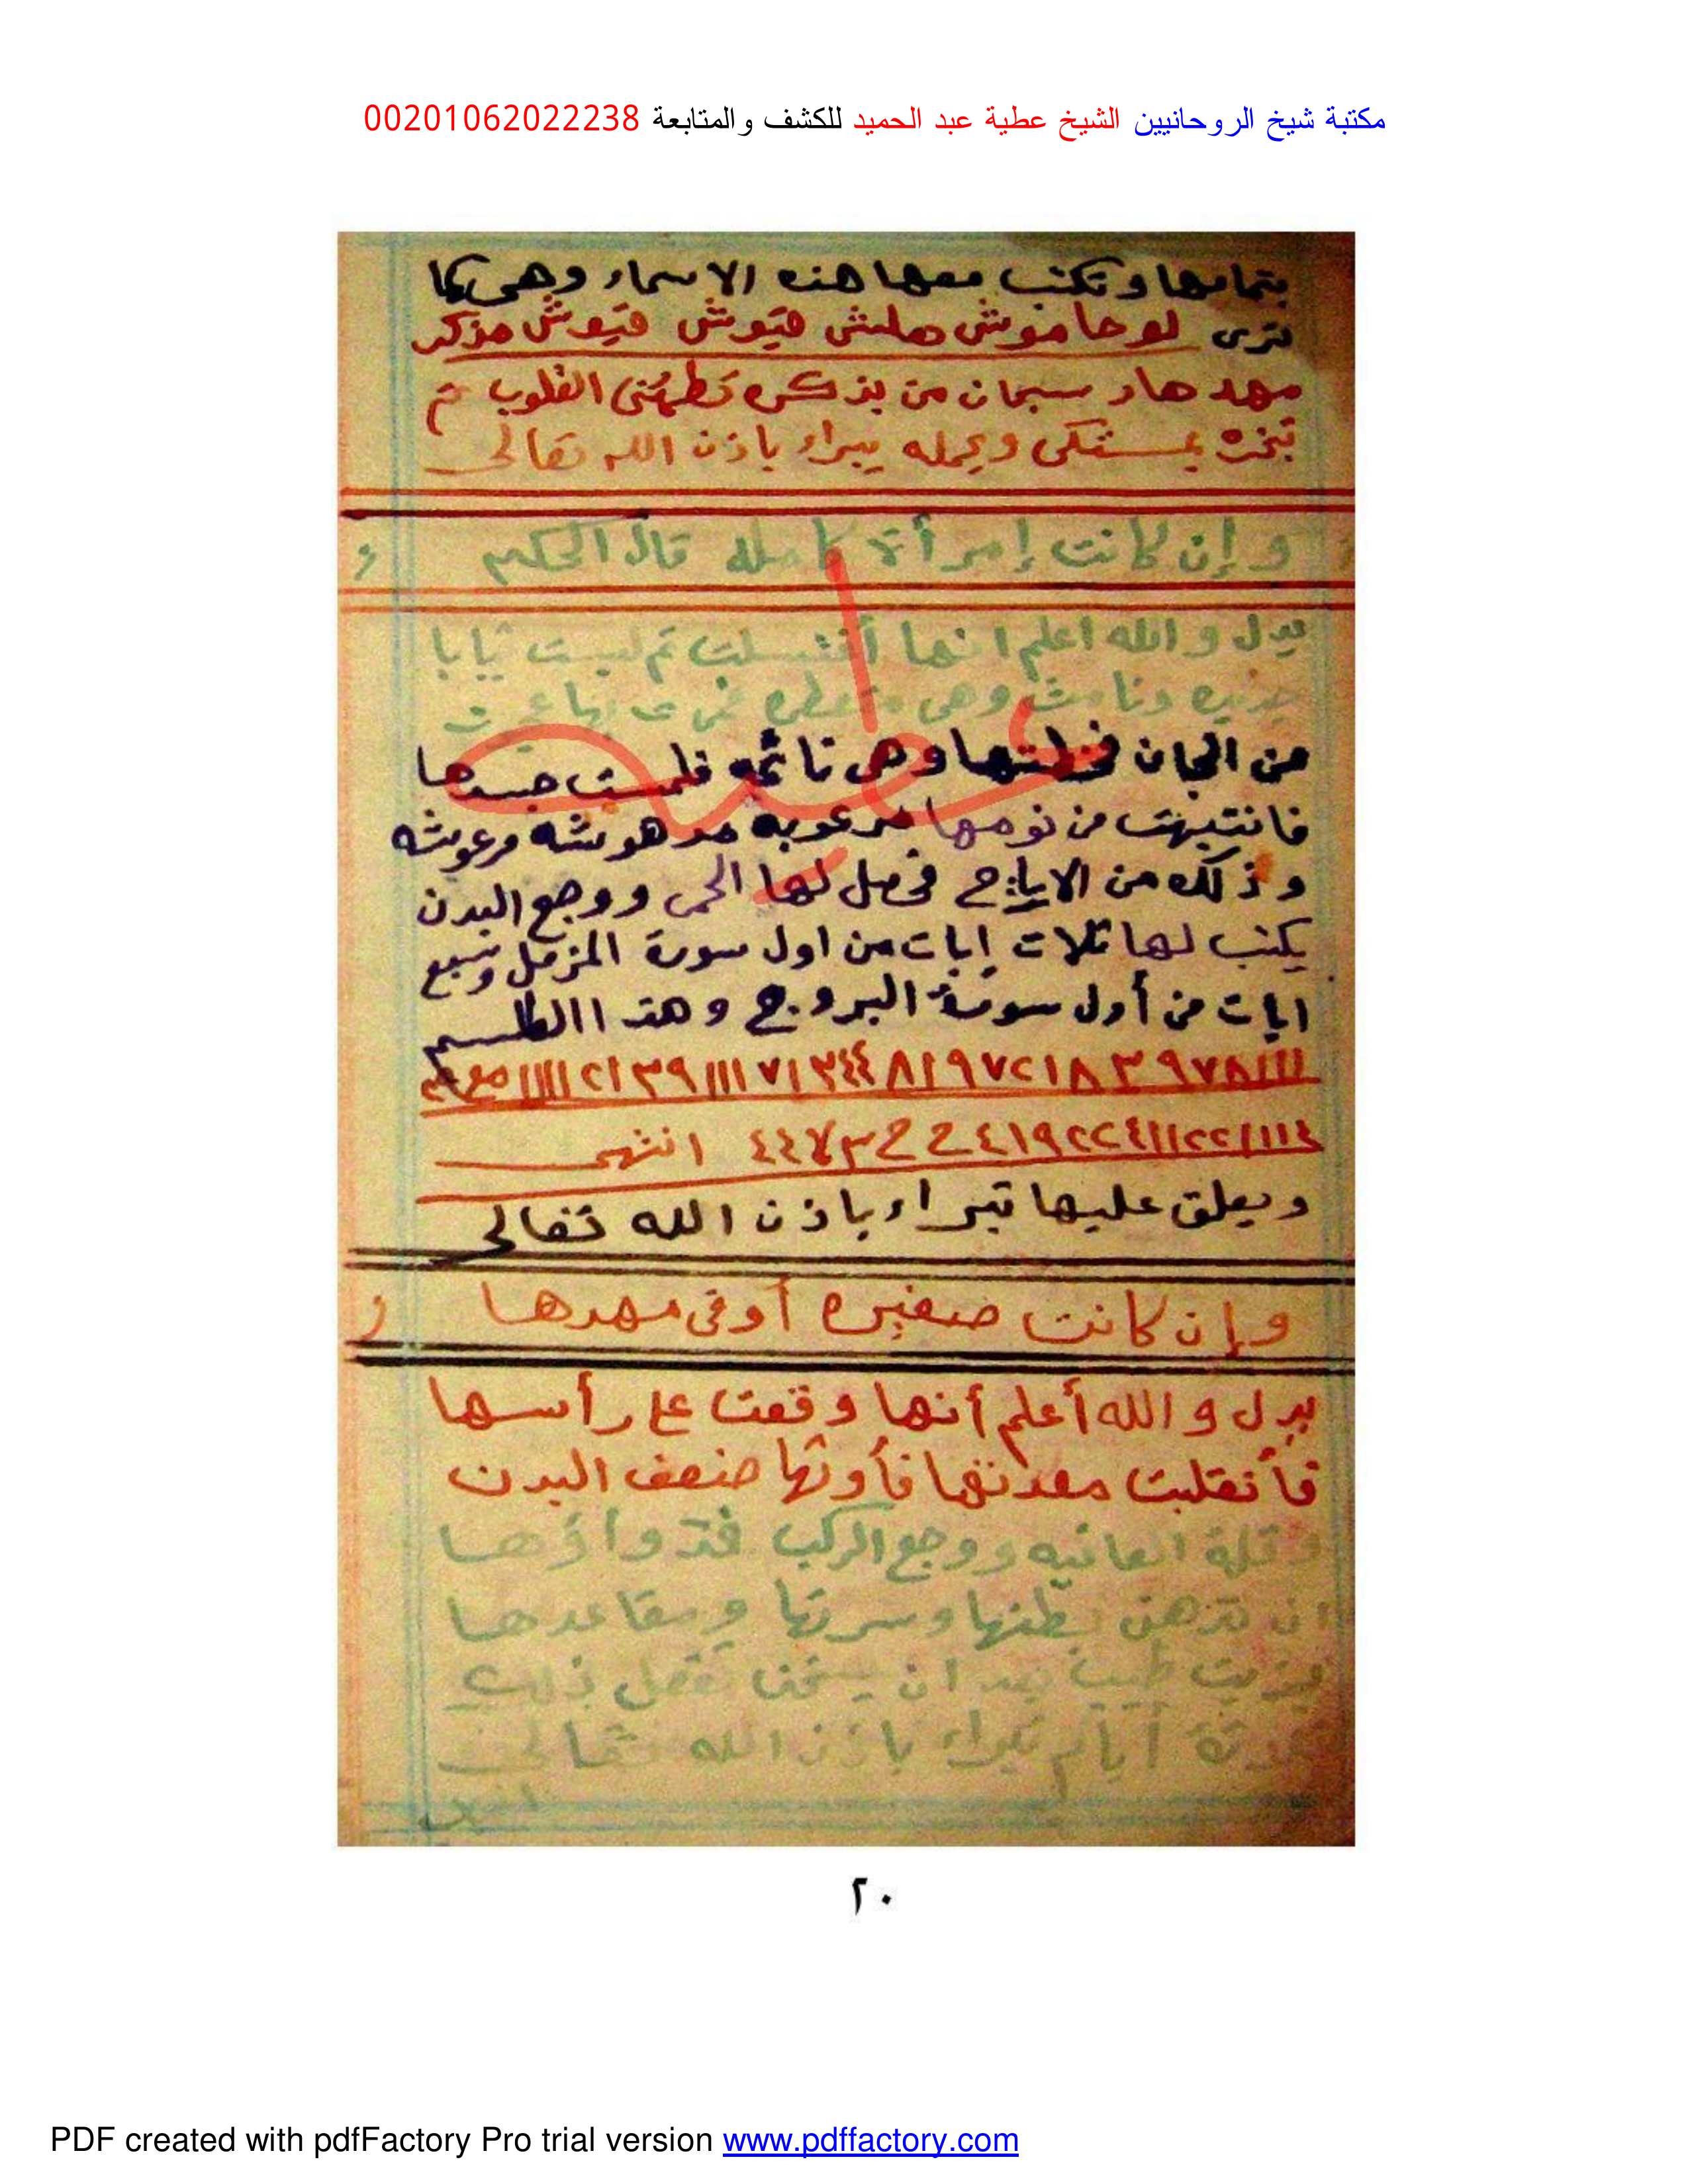 مكتبة شيخ الروحانيين الشيخ عطية عبد الحميد للكشف والمتابعة 00201062022238
بتمامها وتكتب معها هذه الاسماء وهى كما
ترى لوحاموش هلش قيوش قيوش مذكر
مهد هاد سبحان من بذكره تطمئن القلوب ثم
تبخره بمستكى ويحمله يبراء باذن الله تعالى
وإن كانت إمرأة كامله قال الحكيم
يدل والله اعلم انها أغتسلت ثم لبست ثيابا
ونامت وهى متعطره
من الجان وهى نائمه فلمست جسدها
فانتبهت من نومها مرعوبه مدهوشه مرعوشه
وذلك من الارياح فحصل لها الحمى ووجع البدن
يكتب لها ثلاث ايات من اول سورة المزمل وسبع
ايات من أول سورة البروج وهذا الطلسم
انتهى
ويعلق عليها تبراء باذن الله تعالى
وإن كانت صغيره أو فى مهدها
يدل والله أعلم أنها وقعت على رأسها
فأنقلبت معدتها ضعف البدن
وقلة العافيه ووجع الركب فدواؤها
ان تدهن بطنها وسرتها ومقاعدها
بزيت طيب بعد ان يسخن تفعل ذلك
أيام تبراء باذن الله تعالى
٢٠
PDF created with pdfFactory Pro trial version www.pdffactory.com